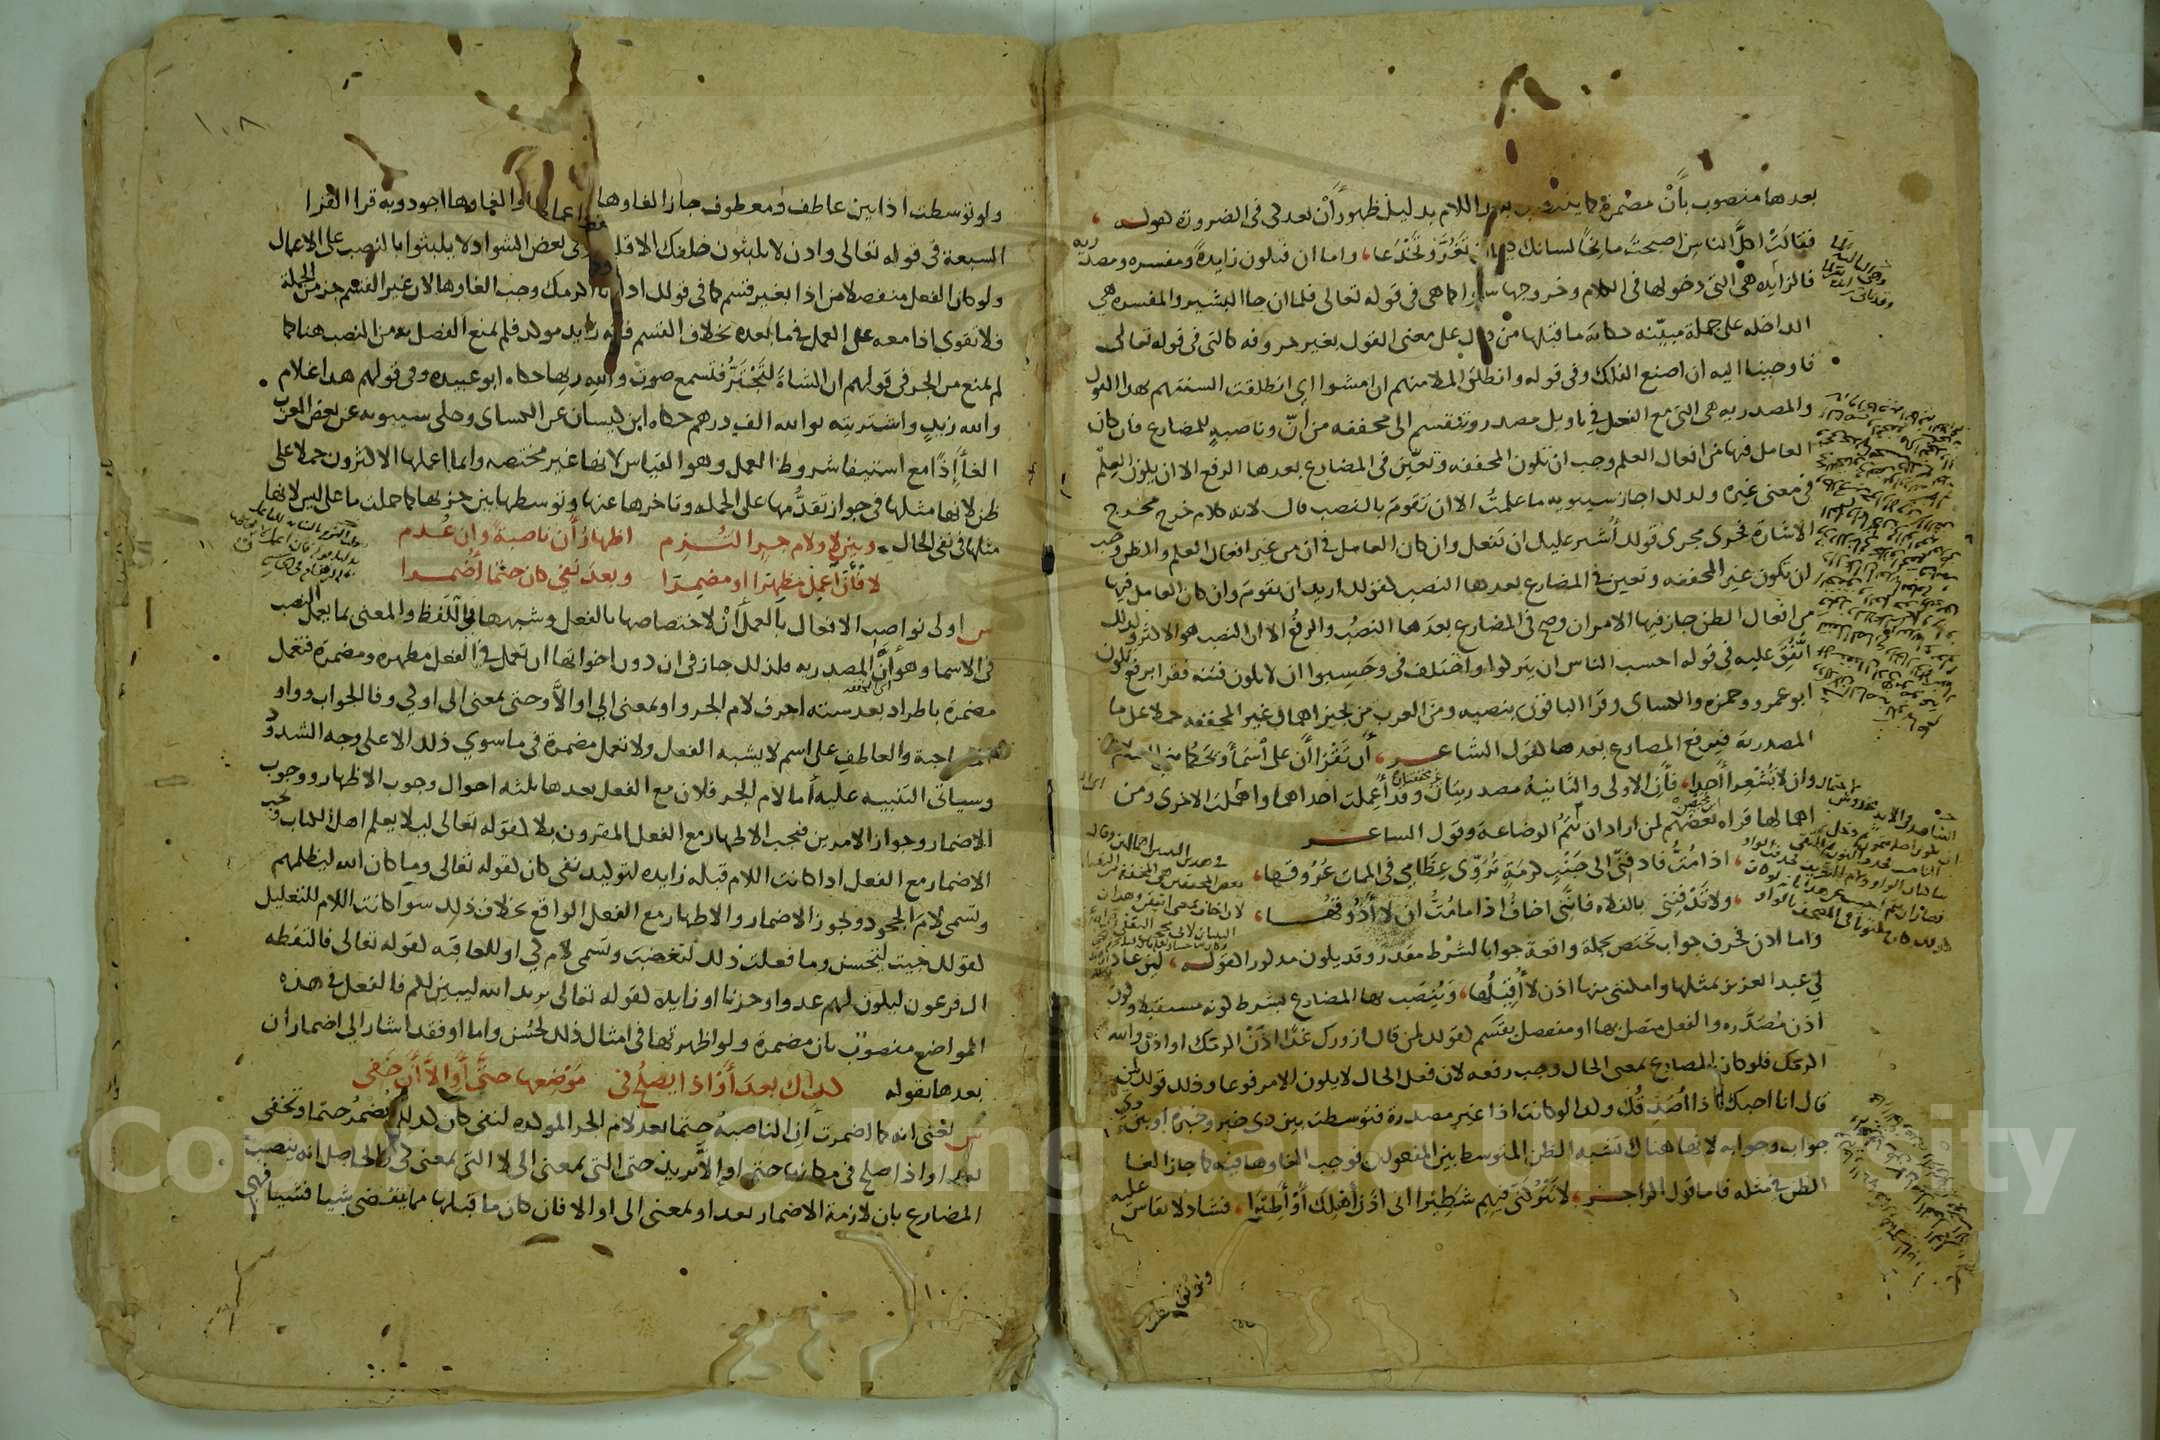 بعدها منصوب بأن مضمرة كما ينتصب بعد اللام بدليل ظهور أن بعد كى فى الضرورة كقوله
فقالت اكل الناس اصبحت مانحا لسانك كيما ان تغر وتخدعا، واما ان فتكون زايدة ومفسره ومصدريه
فالزايده هى التى دخولها فى الكلام وخروجها سوا كما هى فى قوله تعالى فلما ان جا البشير والمفسره هى
الداخله على جملة مبينه حكاية ما قبلها من دال على معنى القول بغير حروفه كالتى فى قوله تعالى
فاوحينا اليه ان اصنع الفلك وفى قوله وانطلق الملا منهم ان امشوا اي انطلقت السنتهم بهذا القول
والمصدريه هى التى مع الفعل فى تاويل مصدر وتنقسم الى مخففه من أن وناصبة للمضارع فان كان
العامل فيها من افعال العلم وجب ان تكون المخففه وتعين فى المضارع بعدها الرفع الا ان يكون العلم
فى معنى غيره ولذلك اجاز سيبويه ما علمت الا ان تقوم بالنصب قال لانه كلام خرج مخرج
الاشارة فجرى مجرى قولك أشير عليك ان تفعل وان كان العامل فى ان من غير افعال العلم والظن وجب
ان تكون غير المخففه وتعين فى المضارع بعدها النصب كقولك اريد ان تقوم وان كان العامل فيها
من افعال الظن جاز فيها الامران وصح فى المضارع بعدها النصب والرفع الا ان النصب هو الاكثر ولذلك
اتفق عليه فى قوله احسب الناس ان يتركوا واختلف فى وحسبوا ان لا يكون فتنه فقرا برفع تكون
ابو عمرو وحمزه والكساى وقرا الباقون بنصبه ومن العرب من يجيز اهمال غير المخففه حملا على ما
المصدرية فيرفع المضارع بعدها كقول الشاعر، أن تقرأان على أسماء ويحكما مني السلام
وان لا تشعرا أحدا، فأن الاولى والثانية مصدريتان وقد أعملت احداهما واهملت الاخرى ومن
اهمالها قراه بعضهم لمن اراد ان يتم الرضاعة وقول الشاعر
اذا مت فادفنى الى جنب كرمة تروى عظامى فى الممات عروقها،
ولا تدفننى بالفلاه فاننى اخاف اذا ما مت ان لا أذوقها،
واما اذن فحرف جواب تختص بجملة واقعة جوابا لشرط مقدر وقد يكون مذكورا كقوله، لين عاد
لي عبد العزيز بمثلها وامكننى منها اذن لا أقيلها، وينصب بها المضارع بشرط كونه مستقبلا وكون
اذن مصدره والفعل متصل بها او منفصل بقسم كقولك لمن قال ازورك غدا اذن اكرمك او اذن والله
اكرمك فلو كان المضارع بمعنى الحال وجب رفعه لان فعل الحال لا يكون الا مرفوعا وذلك قولك لمن
قال انا احبك اذا أصدقك وكذا لو كانت اذا غير مصدرة فتوسطت بين ذى خبر وخبره او بين ذى
جواب وجوابه لانها هناك تشبه الظن المتوسط بين المفعولين فوجب الغاوها فيه كما جاز الغا
الظن فى مثله فاما قول الراجز، لا تتركنى فيهم شطيرا انى اذن أهلك أو أطيرا، فشاذ لا يقاس عليه
١٠٨
ولو توسطت اذا بين عاطف ومعطوف جاز الغاوها واعمالها والغاوها اجود وبه قرا القرا
السبعة فى قوله تعالى واذن لا يلبثون خلفك الا قليلا وفى بعض الشواذ لا يلبثوا بالنصب على الاعمال
ولو كان الفعل منفصلا من اذا بغير قسم كما فى قولك اذا انا اكرمك وجب الغاوها لان غير القسم جز من الجملة
فلا تقوى اذا معه على العمل فيما بعده بخلاف القسم فانه زايد موكد فلم يمنع الفصل به من النصب هنا كما
لم يمنع من الجر فى قولهم ان الشاة لتجتر فتسمع صوت والله ربها حكاه ابو عبيده وفى قولهم هذا غلام
والله زيد واشتريته بوالله الف درهم حكاه ابن كيسان عن الكساى وحكى سيبويه عن بعض العرب
الغا إذا مع استيفا شروط العمل وهو القياس لانها غير مختصه وانما اعملها الاكثرون حملا على
ظن لانها مثلها فى جواز تقدمها على الجمله وتاخرها عنها وتوسطها بين جزيها كما حملت ما على ليس لانها
مثلها فى نفى الحال وبين لا ولام جر التزم اظهار أن ناصبة وان عدم
لا فأن اعمل مظهرا او مضمرا وبعد نفي كان حتما أضمرا
س اولى نواصب الافعال بالعمل أن لاختصاصها بالفعل وشبهها فى اللفظ والمعنى بما يعمل النصب
فى الاسما وهو أن المصدريه فلذلك جاز فى ان دون اخواتها ان تعمل فى الفعل مظهره ومضمرة فتعمل
مضمرة باطراد بعد سته احرف لام الجر واو بمعنى الى او الا وحتى بمعنى الى او كى وفا الجواب وواو
المصاحبة والعاطف على اسم لا يشبه الفعل ولا تعمل مضمرة فى ما سوي ذلك الا على وجه الشذوذ
وسياتى التنبيه عليه أما لام الجر فلان مع الفعل بعدها ثلثه احوال وجوب الاظهار ووجوب
الاضمار وجواز الامرين فيجب الاظهار مع الفعل المقرون بلا كقوله تعالى ليلا يعلم اهل الكتاب ويجب
الاضمار مع الفعل اذا كانت اللام قبله زايده لتوكيد نفى كان كقوله تعالى وما كان الله ليظلمهم
وتسمى لام الجحود ويجوز الاضمار والاظهار مع الفعل الواقع بخلاف ذلك سوآ كانت اللام للتعليل
كقولك جيت لتحسن وما فعلت ذلك لتغضب وتسمى لام كى او للعاقبه كقوله تعالى فالتقطه
ال فرعون ليكون لهم عدوا وحزنا او زايده كقوله تعالى يريد الله ليبين لكم فالفعل فى هذه
المواضع منصوب بان مضمرة ولو اظهرتها فى امثال ذلك لحسن واما او فقد اشار الى اضمار ان
بعدها بقوله كذاك بعد أو اذا يصلح فى موضعها حتى أو الا أن خفى
س يعنى انه كما اضمرت ان الناصبة حتما بعد لام الجر الموكده لنفى كان كذلك يضمر حتما وتخفى
بعد او اذا صلح فى مكانها حتى او إلا يريد حتى التى بمعنى الى لا التى بمعنى كى والحاصل انه ينصب
المضارع بان لازمة الاضمار بعد او بمعنى الى او الا فان كان ما قبلها مما ينقضى شيا فشيا فهى